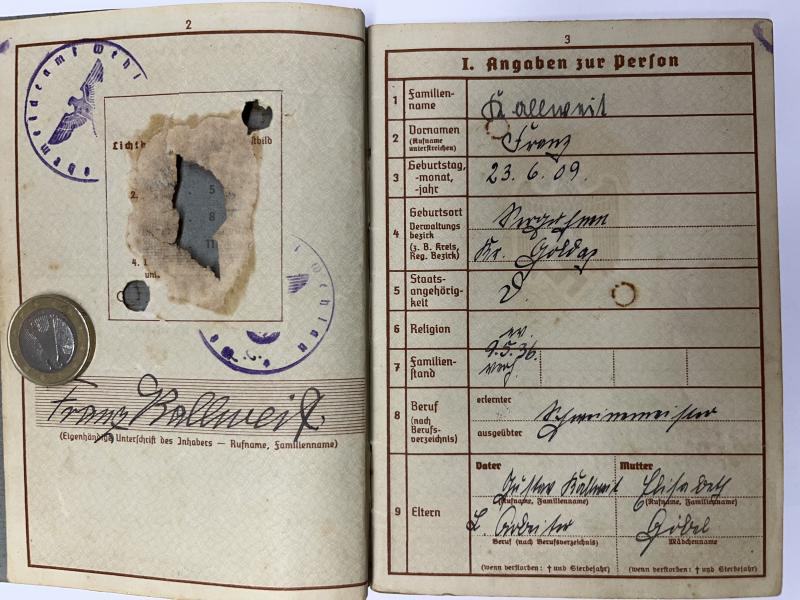 2
Lichtbild
5
2.
8
11
4.
Franz Kallweit
(Eigenhändige Unterschrift des Inhabers — Rufname, Familienname)
3
I. Angaben zur Person
1 Familienname Kallweit
2 Vornamen (Rufname unterstreichen) Franz
3 Geburtstag, -monat, -jahr 23. 6. 09.
4 Geburtsort
Verwaltungsbezirk
(z. B. Kreis, Reg. Bezirk) Kr. Goldap
5 Staatsangehörigkeit
6 Religion ev.
9.5.36.
7 Familienstand verh.
8 Beruf (nach Berufsverzeichnis) erlernter
Schweinemeister
ausgeübter
9 Eltern
Vater Mutter
Gustav Kallweit Elisabeth
(Rufname, Familienname) (Rufname, Familienname)
L. Arbeiter Göbel
Beruf (nach Berufsverzeichnis) Mädchenname
(wenn verstorben: † und Sterbejahr) (wenn verstorben: † und Sterbejahr)